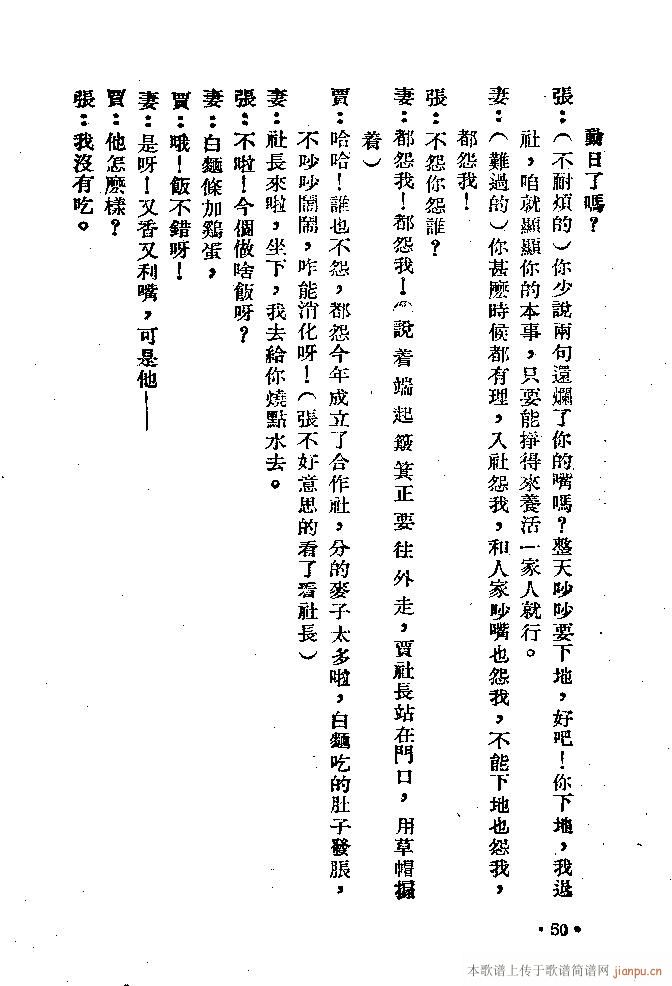 動日了嗎？
張：（不耐煩的）你少說兩句還爛了你的嘴嗎？整天吵吵要下地，好吧！你下地，我退
社，咱就顯顯你的本事，只要能掙得來養活一家人就行。
妻：（難過的）你甚麼時候都有理，入社怨我，和人家吵嘴也怨我，不能下地也怨我，
都怨我！
張：不怨你怨誰？
妻：都怨我！都怨我！（說着端起簸箕正要往外走，賈社長站在門口，用草帽搧
着）
賈：哈哈！誰也不怨，都怨今年成立了合作社，分的麥子太多啦，白麵吃的肚子發脹，
不吵吵鬧鬧，咋能消化呀！（張不好意思的看了看社長）
妻：社長來啦，坐下，我去給你燒點水去。
張：不啦！今個做啥飯呀？
妻：白麵條加鷄蛋，
賈：哦！飯不錯呀！
妻：是呀！又香又利嘴，可是他——
賈：他怎麼樣？
張：我沒有吃。
·50·
本歌谱上传于歌谱简谱网
jianpu.cn